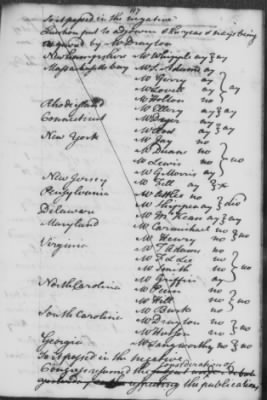 117
So it passed in the negative
Question put to adjourn & the yeas & nays being
required by Mr Drayton
New hampshire Mr Whipple ay } ay
Massachusetts bay Mr S Adams ay
Mr Gerry ay } ay
Mr Lovell ay
Mr Holten no
Rhode island Mr Ellery ay } ay
Connecticut Mr Dyer ay
Mr Root ay } ay
New York Mr Jay no
Mr Duane no } no
Mr Lewis no
Mr G Morris ay
New Jersey Mr Fell ay } x
Pensylvania Mr Atlee no
Mr Shippen ay } div
Delaware Mr McKean ay } ay
Maryland Mr Carmichael no } no
Mr Henry no
Virginia Mr T Adams no
Mr F L Lee no } no
Mr Smith no
Mr Griffin ay
North Carolina Mr Penn no
Mr Hill no } no
Mr Burk no
South Carolina Mr Drayton no } no
Mr Hutson no
Georgia Mr Langworthy no } no
So it passed in the negative
consideration of
Congress resumed the
yesterday respecting the publication,